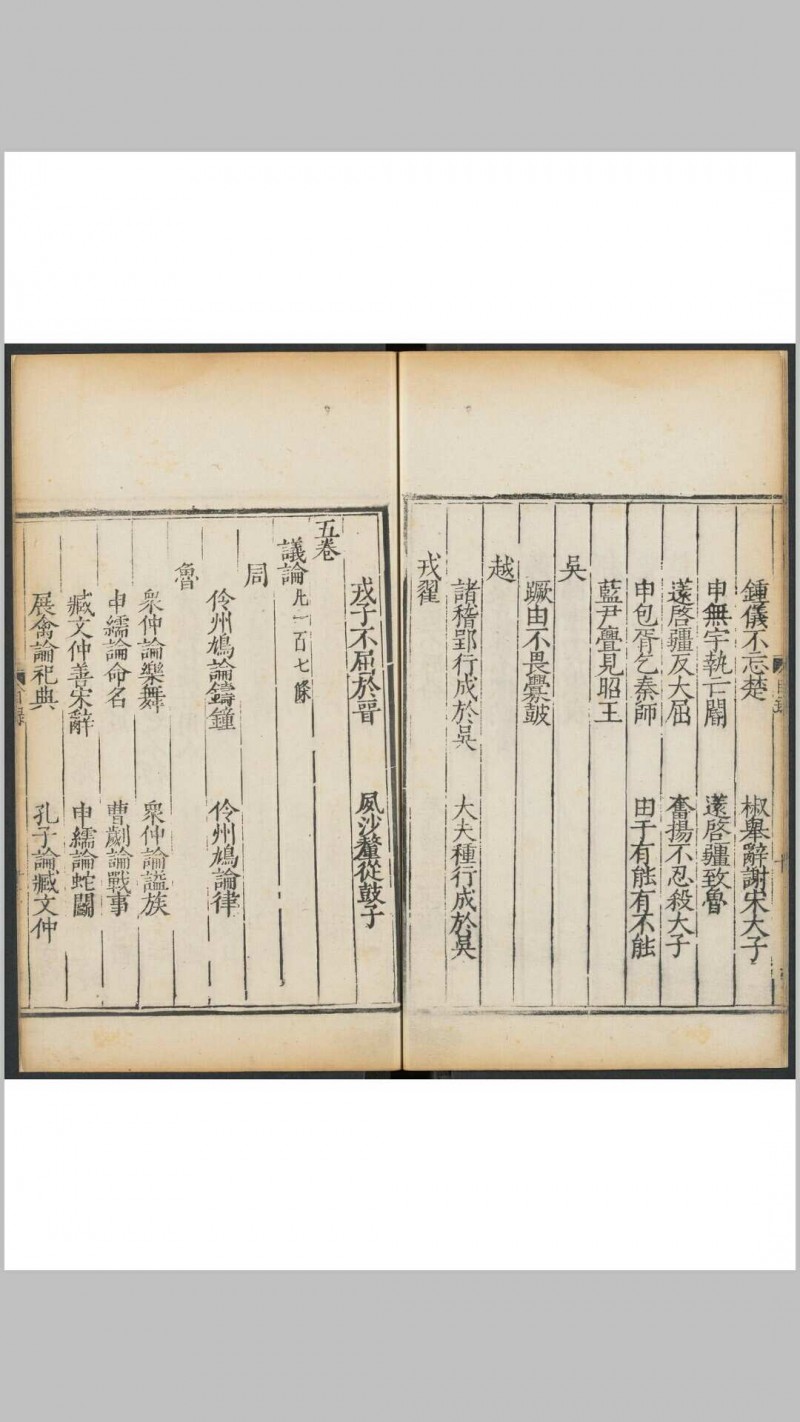 鍾儀不忘楚　椒舉辭謝宋大子
申無宇執亡閽　薳啓疆致魯
薳啓疆反大屈　奮揚不忍殺大子
申包胥乞秦師　由于有能有不能
藍尹亹見昭王
吳
蹶由不畏釁鼓
越
諸稽郢行成於吳　大夫種行成於吳
戎翟
戎子不屈於晉　夙沙釐從鼓子
五卷
議論凡一百七條
周
伶州鳩論鑄鐘　伶州鳩論律
魯
衆仲論樂舞　衆仲論謚族
申繻論命名　曹劌論戰事
臧文仲善宋辭　申繻論蛇鬭
展禽論祀典　孔子論臧文仲